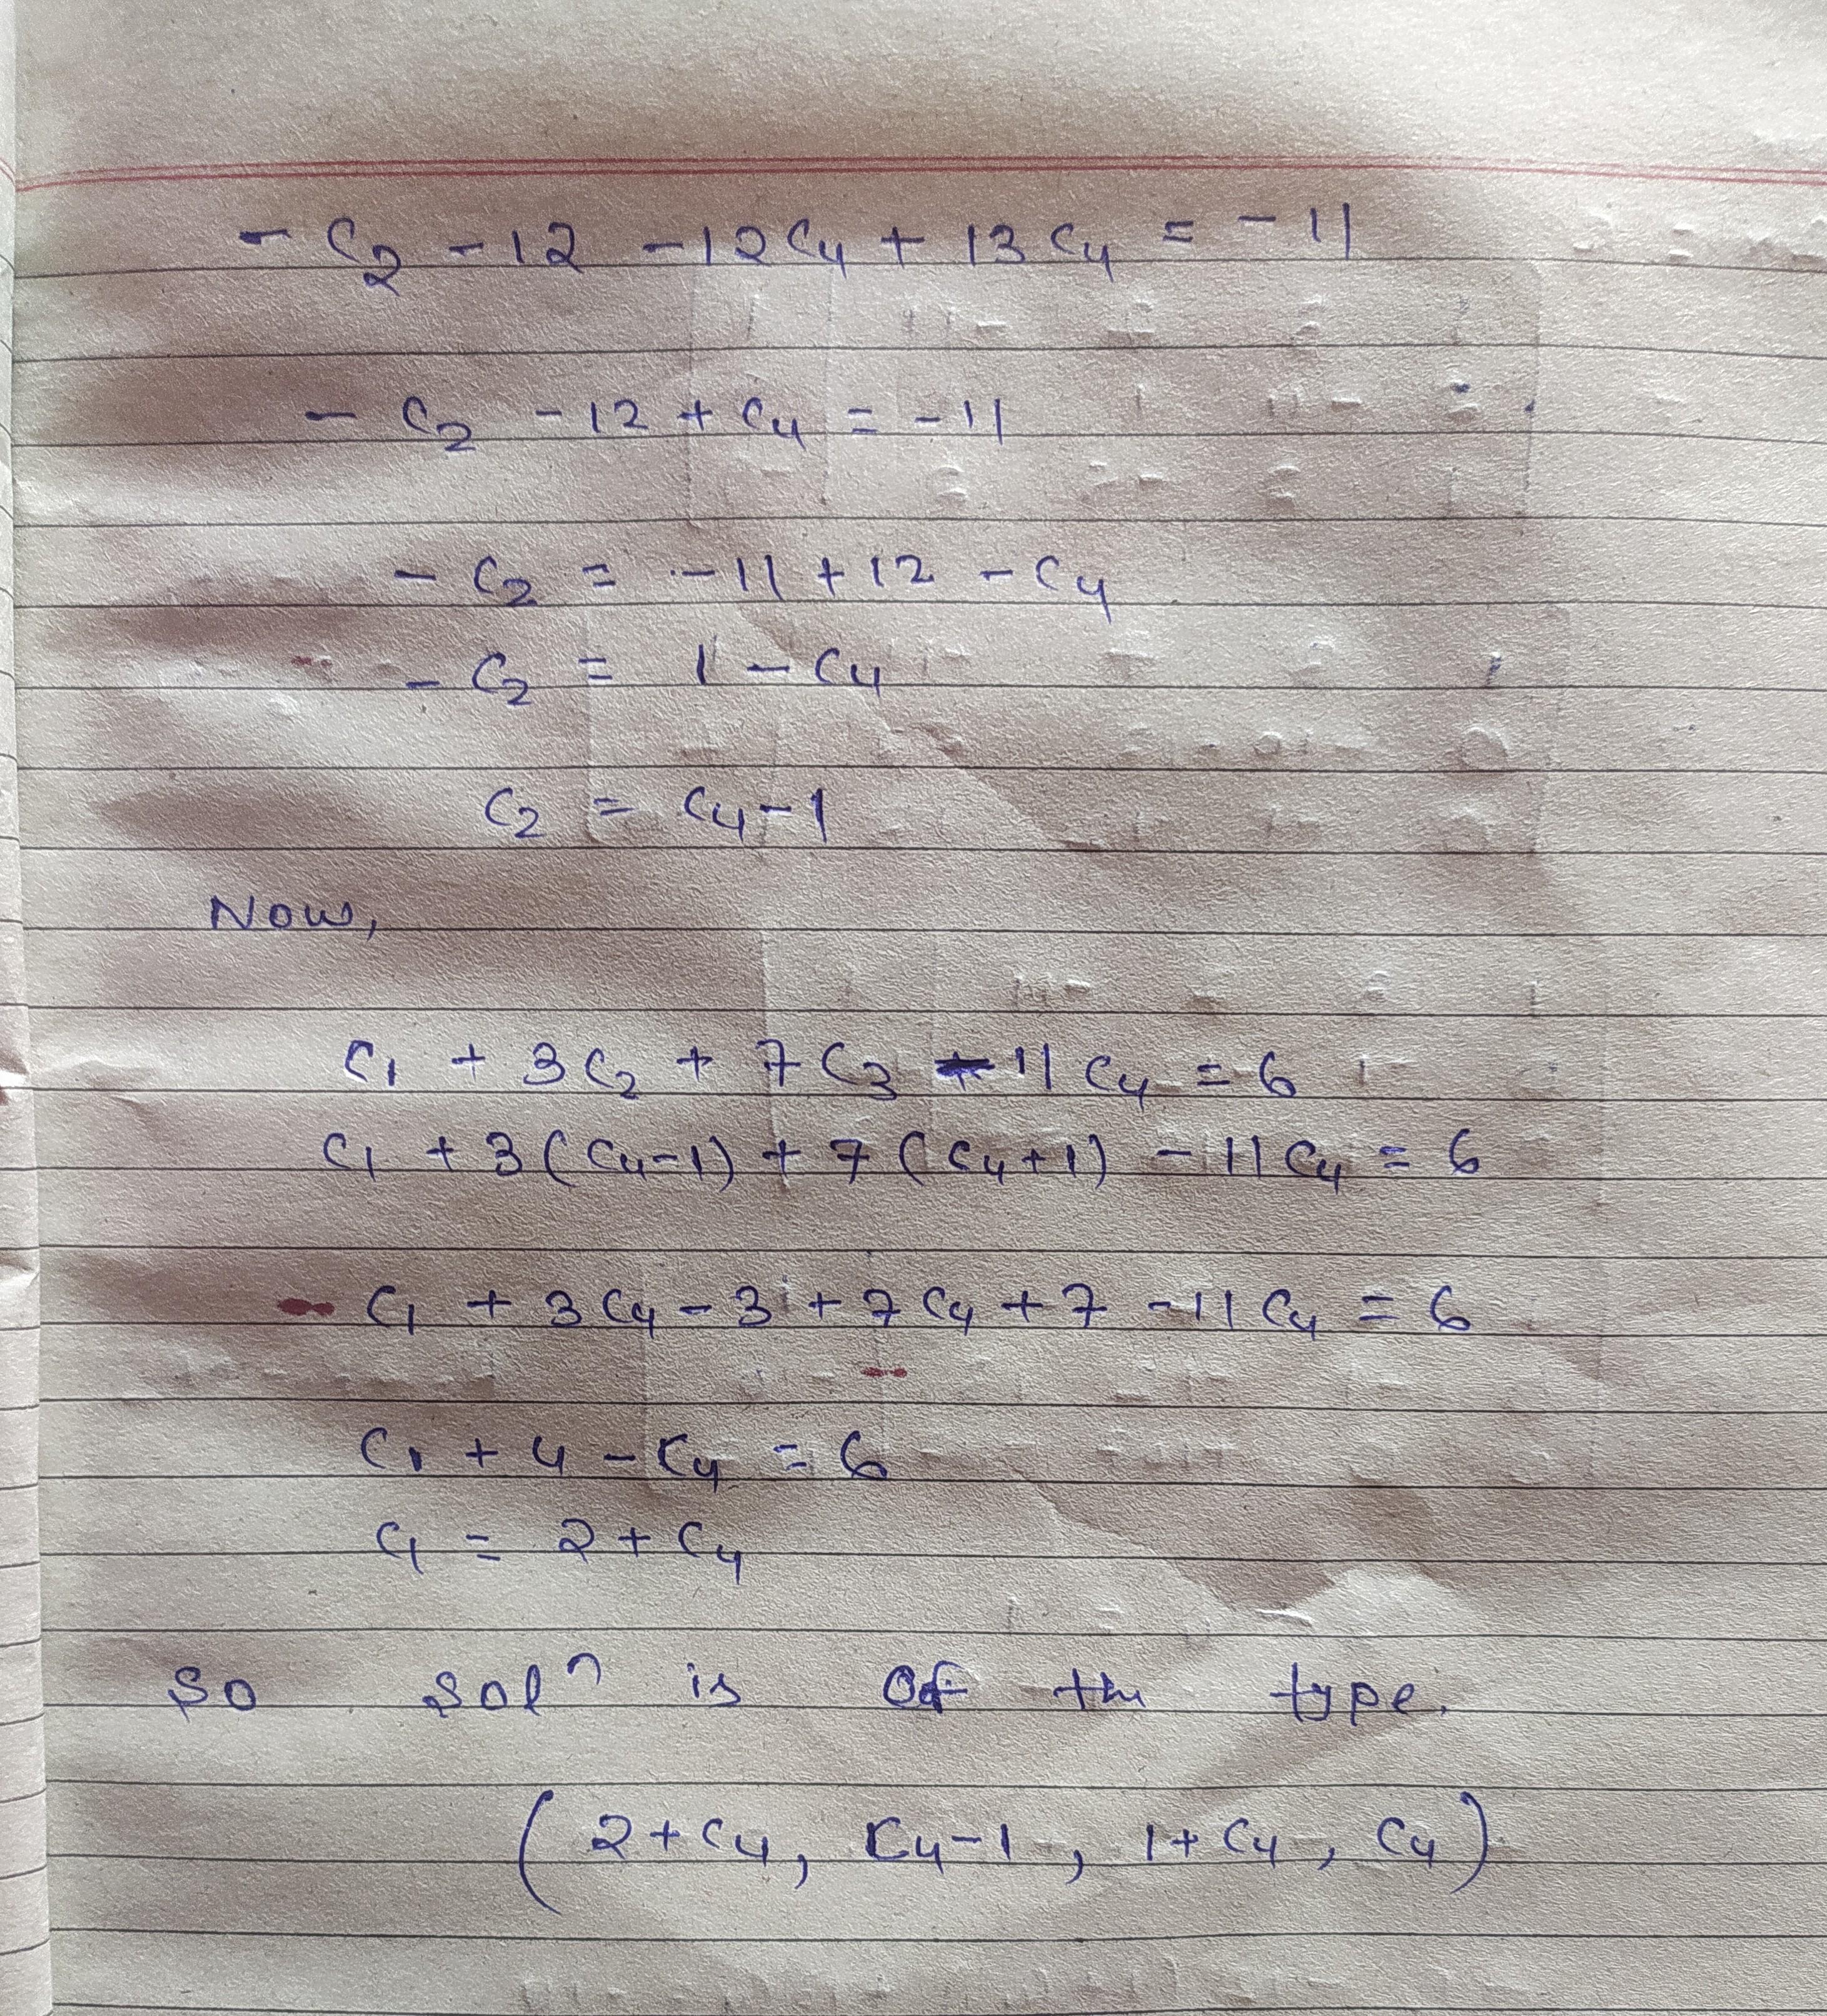 - C₂ - 12 - 12C₄ + 13C₄ = -11
- C₂ - 12 + C₄ = -11
- C₂ = -11 + 12 - C₄
- C₂ = 1 - C₄
C₂ = C₄ - 1
Now,
C₁ + 3C₂ + 7C₃ - 11C₄ = 6
C₁ + 3(C₄-1) + 7(C₄+1) - 11C₄ = 6
C₁ + 3C₄ - 3 + 7C₄ + 7 - 11C₄ = 6
C₁ + 4 - C₄ = 6
C₁ = 2 + C₄
So solⁿ is of the type.
(2+C₄, C₄-1, 1+C₄, C₄)